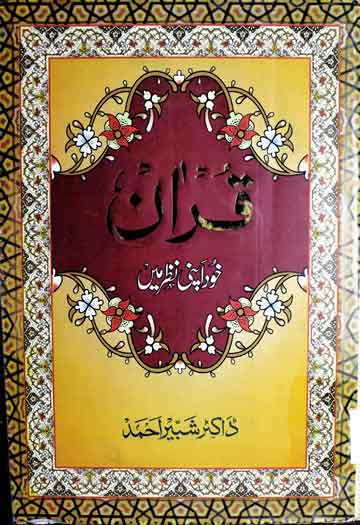 قُرْآن
خُود اپنی نظر میں
ڈاکٹر شبیر احمد